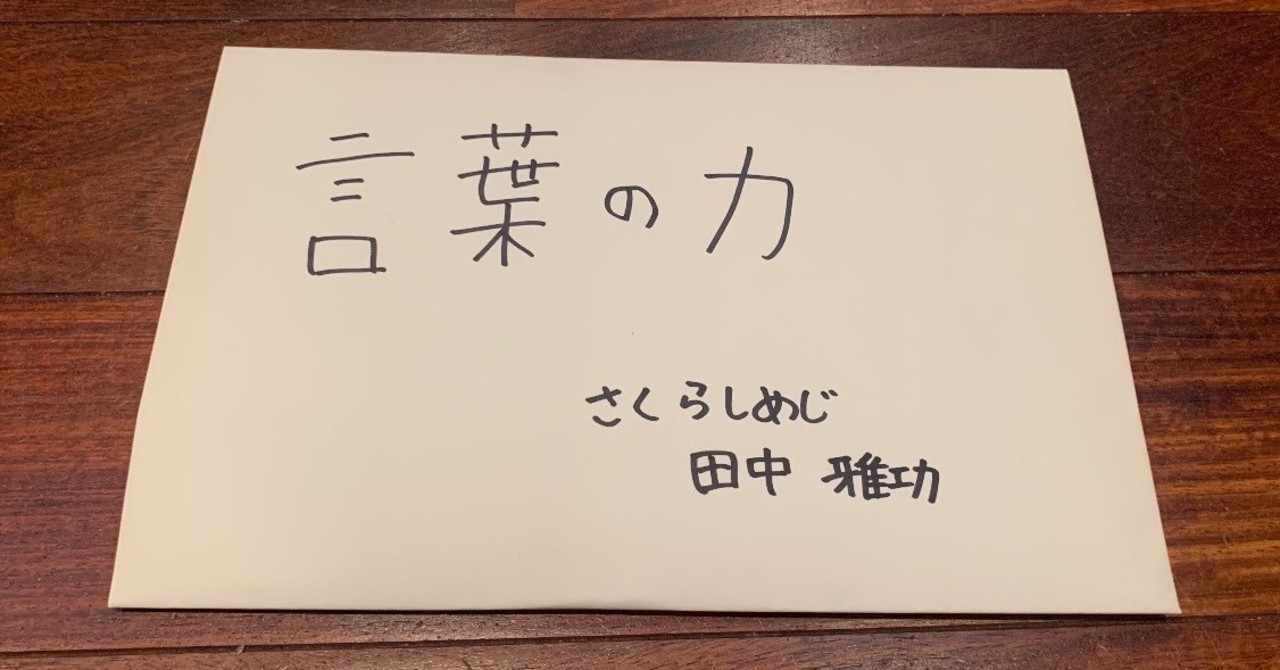 言葉の力
さくらしめじ
田中 雅功